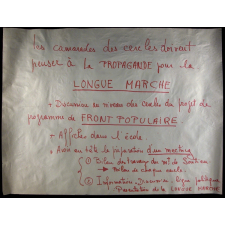 Les camarades des cercles doivent
penser à la PROPAGANDE pour la
LONGUE MARCHE
+ Discussion au niveau des cercles du projet de
programme de FRONT POPULAIRE
+ Affiches dans l'école
+ Avoir en tête la préparation d'un meeting
① Bilan des travaux de
de chaque cercle
② Information
Présentation de la LONGUE MARCHE